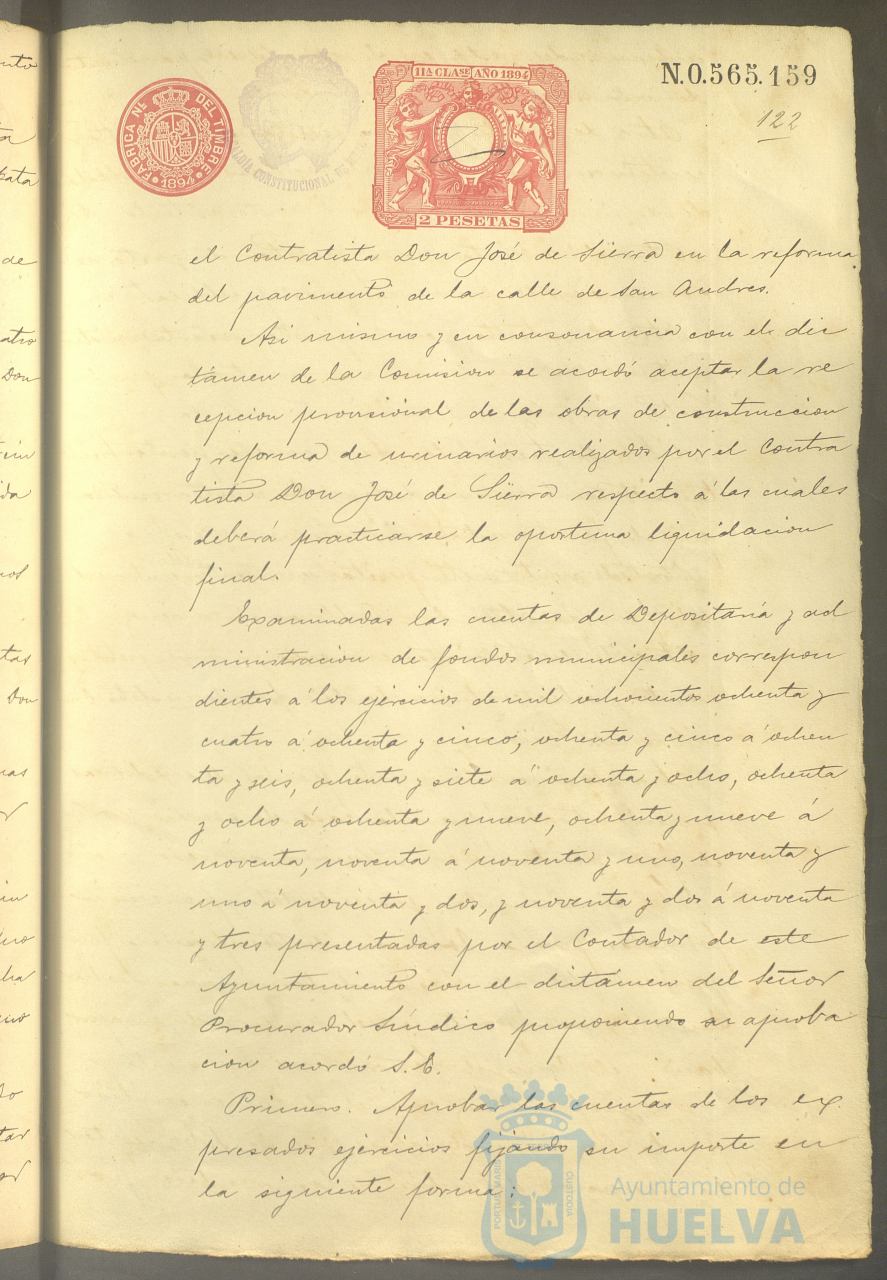 FABRICA NL. DEL TIMBRE
1894
11A CLASE AÑO 1894
2 PESETAS
CONSTITUCIONAL DE
N.0.565.159
122
el Contratista Don José de Sierra en la reforma
del pavimento de la calle de San Andres.
Asi mismo y en consonancia con el dic
támen de la Comision se acordó aceptar la re
cepcion provisional de las obras de construccion
y reforma de urinarios realizados por el Contra
tista Don José de Sierra respecto á las cuales
deberá practicarse la oportuna liquidacion
final.
Examinadas las cuentas de Depositaría y ad
ministracion de fondos municipales correspon
dientes á los ejercicios de mil ochocientos ochenta y
cuatro á ochenta y cinco, ochenta y cinco á ochen
ta y seis, ochenta y siete á ochenta y ocho, ochenta
y ocho á ochenta y nueve, ochenta y nueve á
noventa, noventa á noventa y uno, noventa y
uno á noventa y dos, y noventa y dos á noventa
y tres presentadas por el Contador de este
Ayuntamiento con el dictámen del Señor
Procurador Síndico proponiendo su aproba
cion acordó S.E.
Primero. Aprobar las cuentas de los ex
presados ejercicios fijando su importe en
la siguiente forma:
PORTUS MARIS
CUSTODIA
Ayuntamiento de
HUELVA